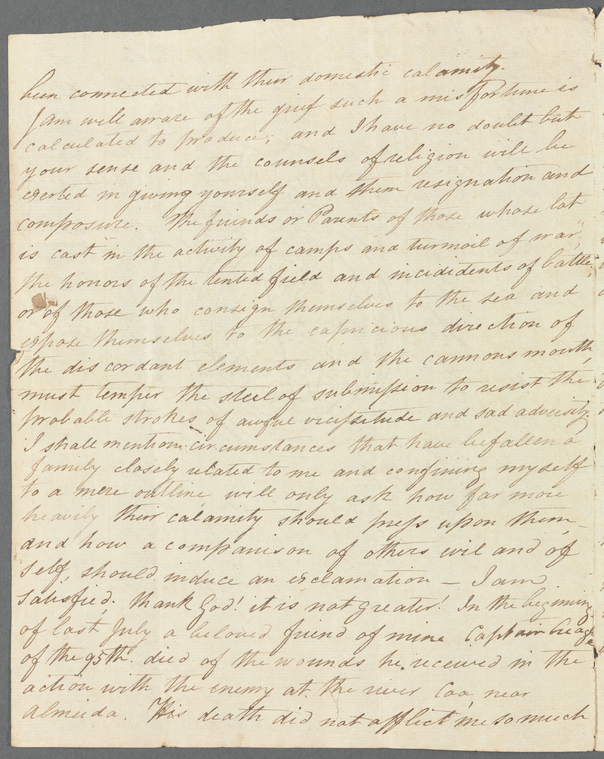 been connected with their domestic calamity.
I am well aware of the grief such a misfortune is
calculated to produce; and I have no doubt but
your sense and the counsels of religion will be
exerted in giving yourself and them resignation and
composure. The friends or Parents of those whose lot
is cast in the activity of camps and turmoil of war,
the honors of the tented field and incididents of battle,
or of those who consign themselves to the sea and
expose themselves to the capricious direction of
the discordant elements and the cannons mouth,
must temper the steel of submission to resist the
probable strokes of awful vicissitude and sad adversity
I shall mention circumstances that have befallen a
family closely related to me and confining myself
to a mere outline will only ask how far more
heavily their calamity should press upon them,
and how a comparison of others evil and of
self, should induce an exclamation — I am
satisfied. thank God! it is not greater! In the begining
of last July a beloved friend of mine Captain Creagh
of the 95th. died of the wounds he received in the
action with the enemy at the river Coa, near
Almeida. His death did not afflict me so much